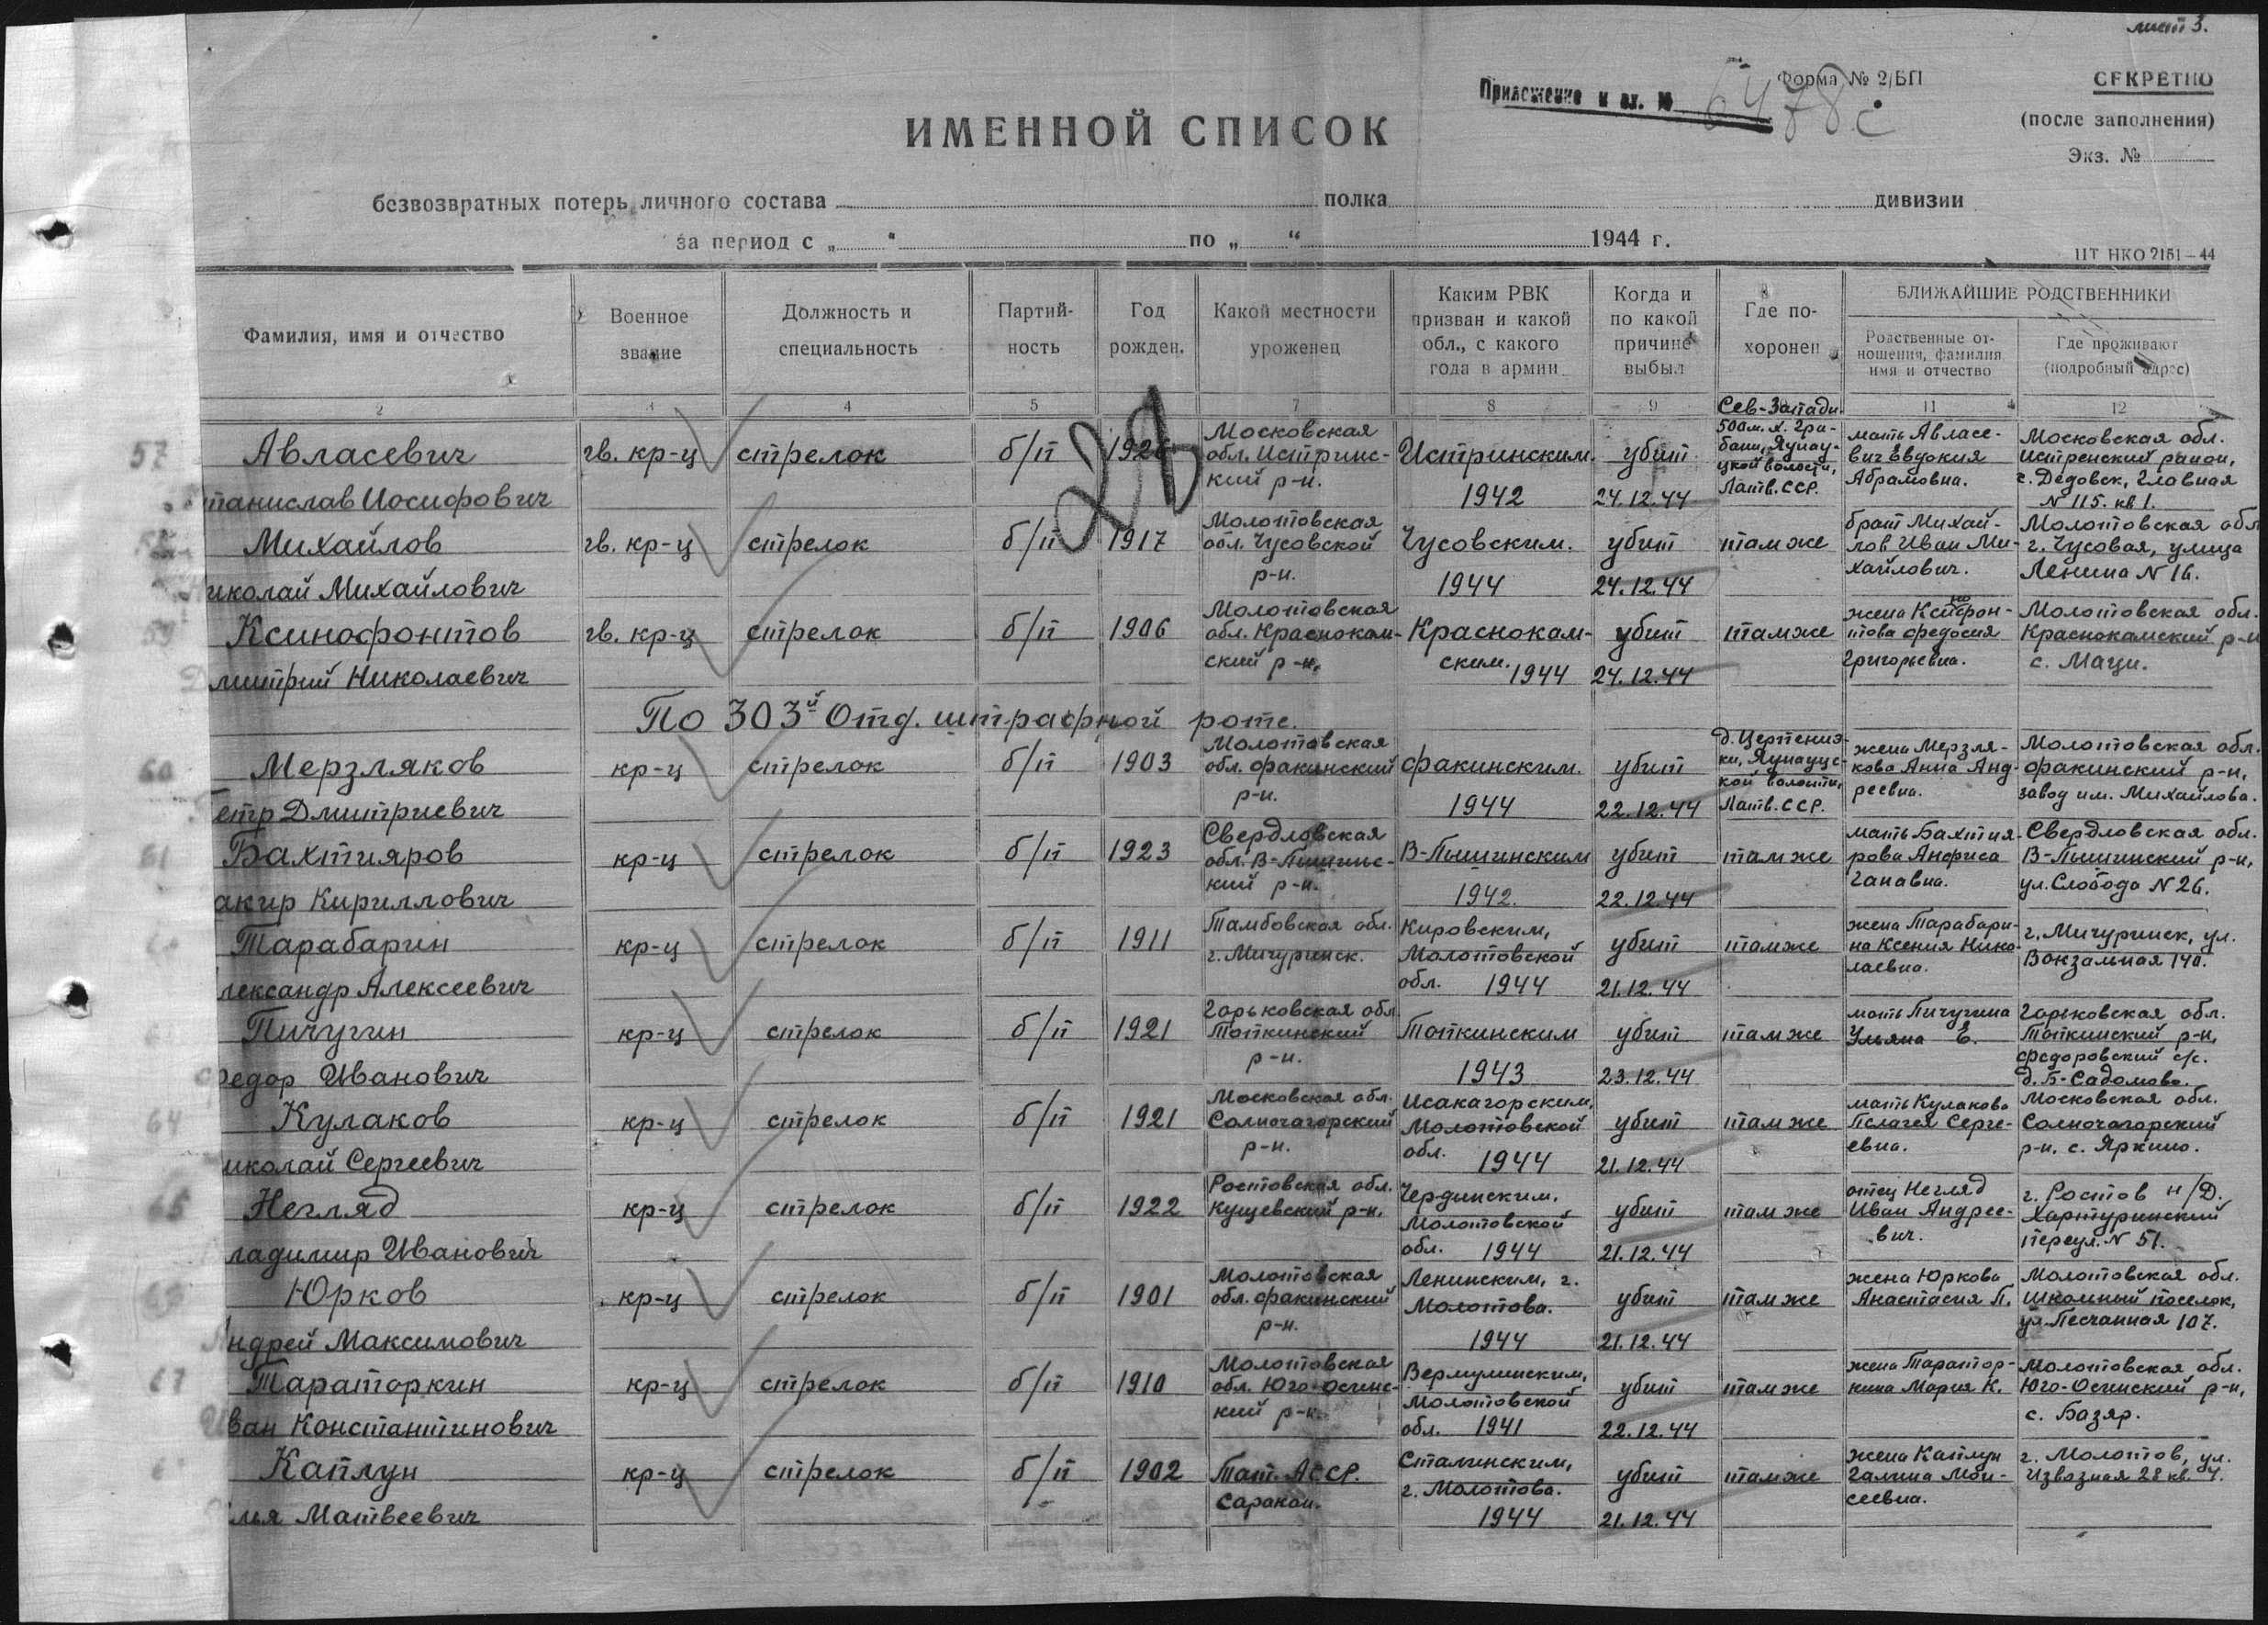 лист 3.
Форма № 2/БП
СЕКРЕТНО
Приложение к вх. № 6478с
(после заполнения)
Экз. №
ИМЕННОЙ СПИСОК
безвозвратных потерь личного состава полка дивизии
за период с „ “ по „ “ 1944 г.
ПТ НКО 2151—44
Фамилия, имя и отчество
Военное
звание
Должность и
специальность
Партий-
ность
Год
рожден.
Какой местности
уроженец
Каким РВК
призван и какой
обл., с какого
года в армии
Когда и
по какой
причине
выбыл
Где по-
хоронен
БЛИЖАЙШИЕ РОДСТВЕННИКИ
Родственные от-
ношения, фамилия
имя и отчество
Где проживают
(подробный адрес)
2 3 4 5 7 8 9 11 12
57
Авласевич
танислав Иосифович
гв. кр-ц
стрелок
б/п
1926
Московская
обл. Истринс-
кий р-н.
Истринским
1942
убит
24.12.44
Сев-Запади.
500 м. х. Гри-
бани, Яунау-
цкой волости,
Латв. ССР.
мать Авласе-
вич Евдокия
Абрамовна.
Московская обл.
Истренский район,
г. Дедовск, Главная
N 115. кв 1.
Михайлов
иколай Михайлович
гв. кр-ц
стрелок
б/п
1917
Молотовская
обл. Чусовской
р-н.
Чусовским.
1944
убит
24.12.44
там же
брат Михай-
лов Иван Ми-
хайлович.
Молотовская обл
г. Чусовая, улица
Ленина N 16.
59
Ксинофонтов
Дмитрий Николаевич
гв. кр-ц
стрелок
б/п
1906
Молотовская
обл. Краснокам-
ский р-н.
Краснокам-
ским. 1944
убит
24.12.44
там же
жена Ксинофон-
това Федосия
Григорьевна.
Молотовская обл.
Краснокамский р-н
с. Маци.
По 303й Отд. штрафной роте.
60
Мерзляков
етр Дмитриевич
кр-ц
стрелок
б/п
1903
Молотовская
обл. Факинский
р-н.
Факинским.
1944
убит
22.12.44
д. Цертениэ-
ки, Яунауцс-
кой волости,
Латв. ССР.
жена Мерзля-
кова Анна Анд-
реевна.
Молотовская обл.
Факинский р-н,
завод им. Михайлова.
61
Бахтияров
акир Кириллович
кр-ц
стрелок
б/п
1923
Свердловская
обл. В-Пышинс-
кий р-н.
В-Пышинским
1942.
убит
22.12.44
там же
мать Бахтия-
рова Анфиса
Ганавна.
Свердловская обл.
В-Пышинский р-н,
ул. Слобода N 26.
Тарабарин
лександр Алексеевич
кр-ц
стрелок
б/п
1911
Тамбовская обл.
г. Мичуринск.
Кировским,
Молотовской
обл. 1944
убит
21.12.44
там же
жена Тарабари-
на Ксения Нико-
лаевна.
г. Мичуринск, ул.
Вокзальная 140.
Пичугин
Федор Иванович
кр-ц
стрелок
б/п
1921
Горьковская обл
Топкинский
р-н.
Топкинским
1943
убит
23.12.44
там же
мать Пичугина
Ульяна Е.
Горьковская обл.
Топкинский р-н,
Федоровский с/с.
д. Б-Садомово.
64
Кулаков
иколай Сергеевич
кр-ц
стрелок
б/п
1921
Московская обл.
Солночагорский
р-н.
Исакагорским,
Молотовской
обл. 1944
убит
21.12.44
там же
мать Кулакова
Пелагея Серге-
евна.
Московская обл.
Солночагорский
р-н. с. Яркино.
65
Негляд
ладимир Иванович
кр-ц
стрелок
б/п
1922
Ростовская обл.
Кущевский р-н.
Чердинским,
Молотовской
обл. 1944
убит
21.12.44
там же
отец Негляд
Иван Андрее-
вич.
г. Ростов н/Д.
Хартуринский
переул. N 51.
Юрков
Андрей Максимович
кр-ц
стрелок
б/п
1901
Молотовская
обл. Факинский
р-н.
Ленинским, г.
Молотова.
1944
убит
21.12.44
там же
жена Юркова
Анастасия П.
Молотовская обл.
Школьный поселок,
ул. Песчанная 107.
67
Тараторкин
Иван Константинович
кр-ц
стрелок
б/п
1910
Молотовская
обл. Юго-Осинс-
кий р-н.
Вермулинским,
Молотовской
обл. 1941
убит
22.12.44
там же
жена Таратор-
кина Мария К.
Молотовская обл.
Юго-Осинский р-н,
с. Базяр.
Каплун
лья Матвеевич
кр-ц
стрелок
б/п
1902
Тат. АССР.
Саракаи.
Сталинским,
г. Молотова.
1944
убит
21.12.44
там же
жена Каплун
Галина Мои-
сеевна.
г. Молотов, ул.
Извозная 28 кв. 4.